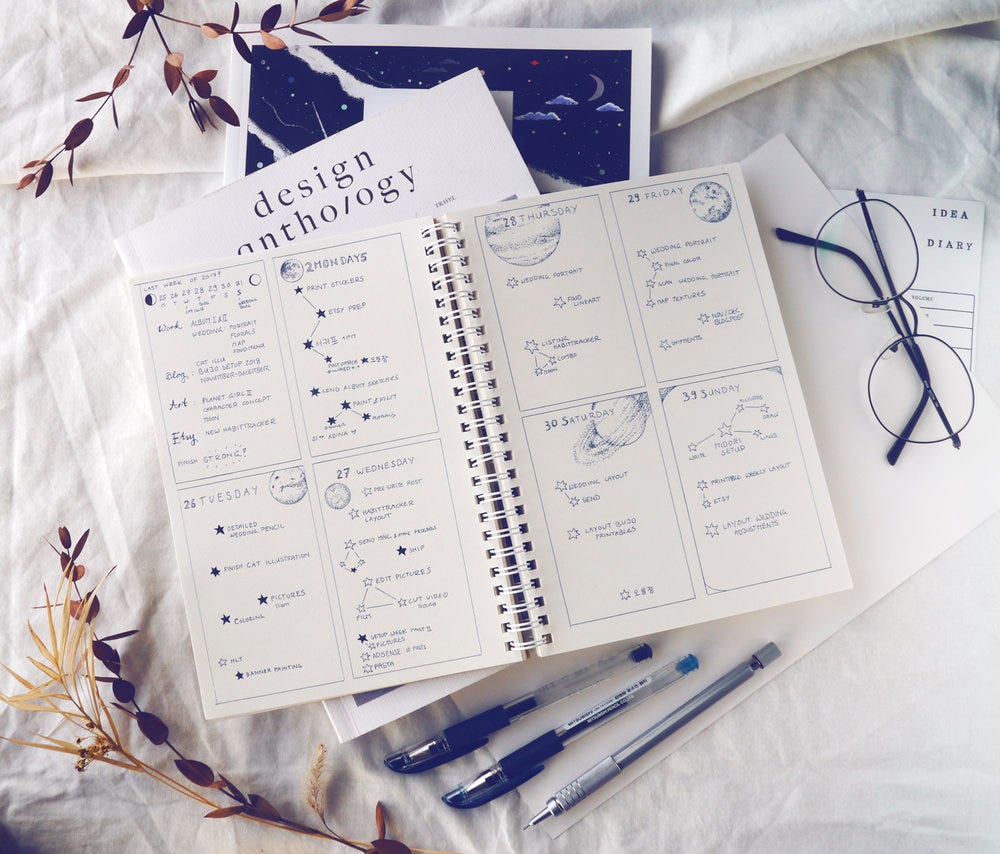 design
anthology
TRAVEL
IDEA
DIARY
VOLUME
LAST WEEK OF 2017!
25 26 27 28 29 30 31
M T W T F S S
Work: ALBUM I & II
WEDDING PORTRAIT
FLORALS
MAP
FOOD MENU
CAT ILLU
Blog: BUJO SETUP 2018
NOVEMBER-DECEMBER
Art: PLANET GIRL II
CHARACTER CONCEPT
MOON
Etsy NEW HABITTRACKER
FINISH STRONG!
MONDAYS
PRINT STICKERS
ETSY PREP
1PM
POSTOFFICE
SEND ALBUM SKETCHES
PAINT & FILM
FLORALS
ADINA
26 TUESDAY
DETAILED
WEDDING PENCIL
FINISH CAT ILLUSTRATION
PICTURES
11am
COLORING
HLT
BANNER PAINTING
27 WEDNESDAY
PRE-WRITE POST
HABITTRACKER
LAYOUT
SEND MAIL & MAKE
SHIP
EDIT PICTURES
FILM
CUT VIDEO
ROUGH
SETUP WEEK PART II
PICTURES
ADSENSE 10 POSTS
PASTA
28 THURSDAY
WEDDING PORTRAIT
FOOD
LINEART
LISTING
HABITTRACKER
COMBO
MOON
29 FRIDAY
WEDDING PORTRAIT
FINAL COLOR
SCAN WEDDING PORTRAIT
MAP TEXTURES
NOV/DEC
BLOGPOST
SHIPMENTS
30 SATURDAY
WEDDING LAYOUT
SEND
LAYOUT BUJO
PRINTABLES
39 SUNDAY
PICTURES
DRAW
WRITE
MIDORI
SETUP
LINKS
PRINTABLE WEEKLY LAYOUT
ETSY
LAYOUT WEDDING
ADJUSTMENTS
MITSUBISHI PENCIL CO., LTD